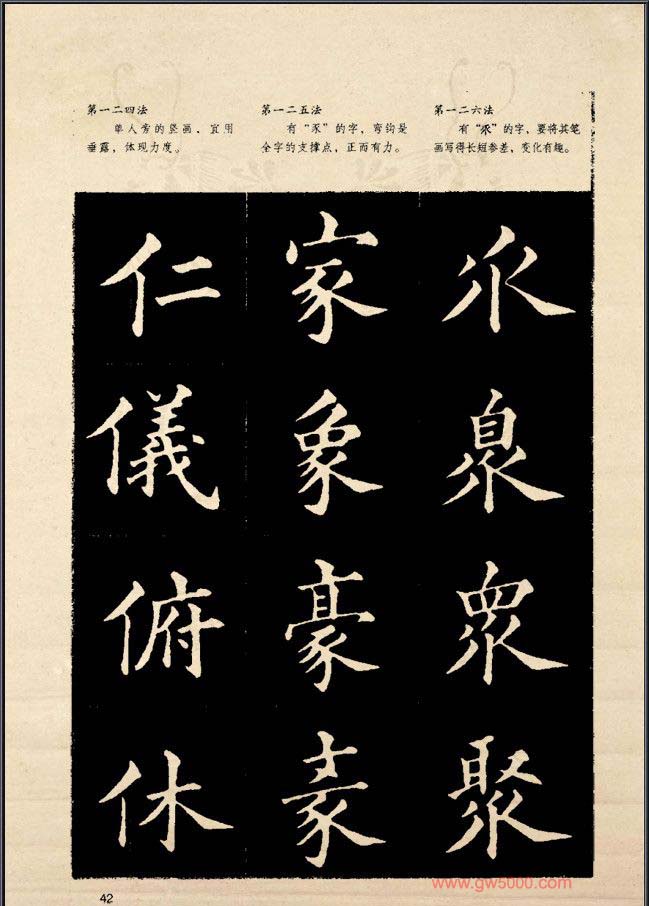 第一二四法
单人旁的竖画、宜用
垂露，体现力度。
第一二五法
有“豕”的字，弯钩是
全字的支撑点，正而有力。
第一二六法
有“乑”的字，要将其笔
画写得长短参差，变化有趣。
仁
儀
俯
休
家
象
豪
乑
臮
眾
聚
www.gw5000.com
42